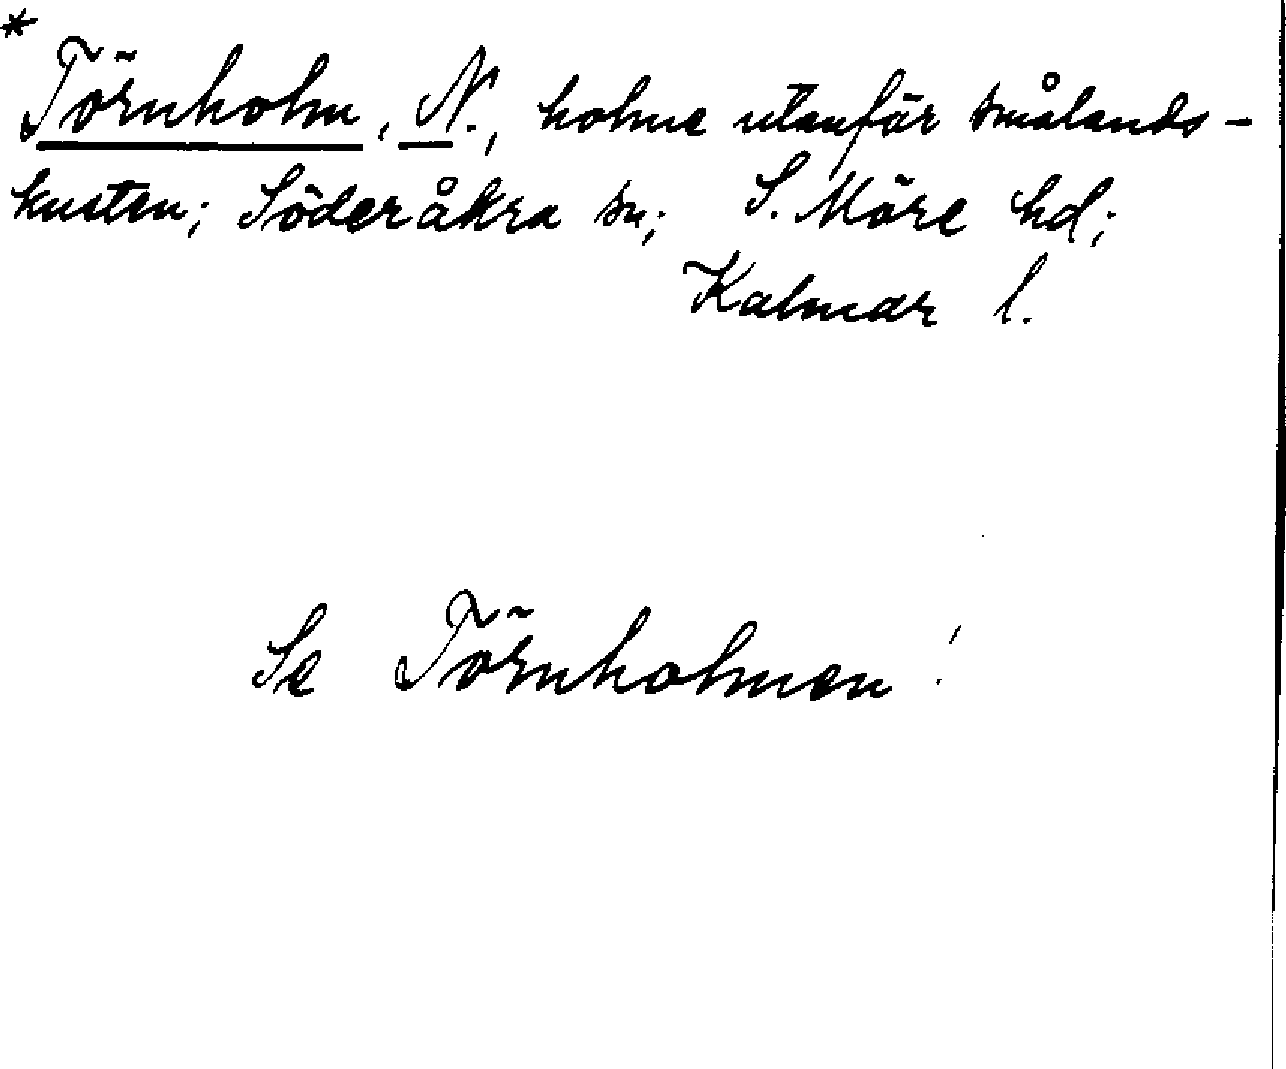 *
Törnholm, N., holme utanför smålands-
kusten; Söderåkra sn; S. Möre hd;
Kalmar l.
Se Törnholmen!